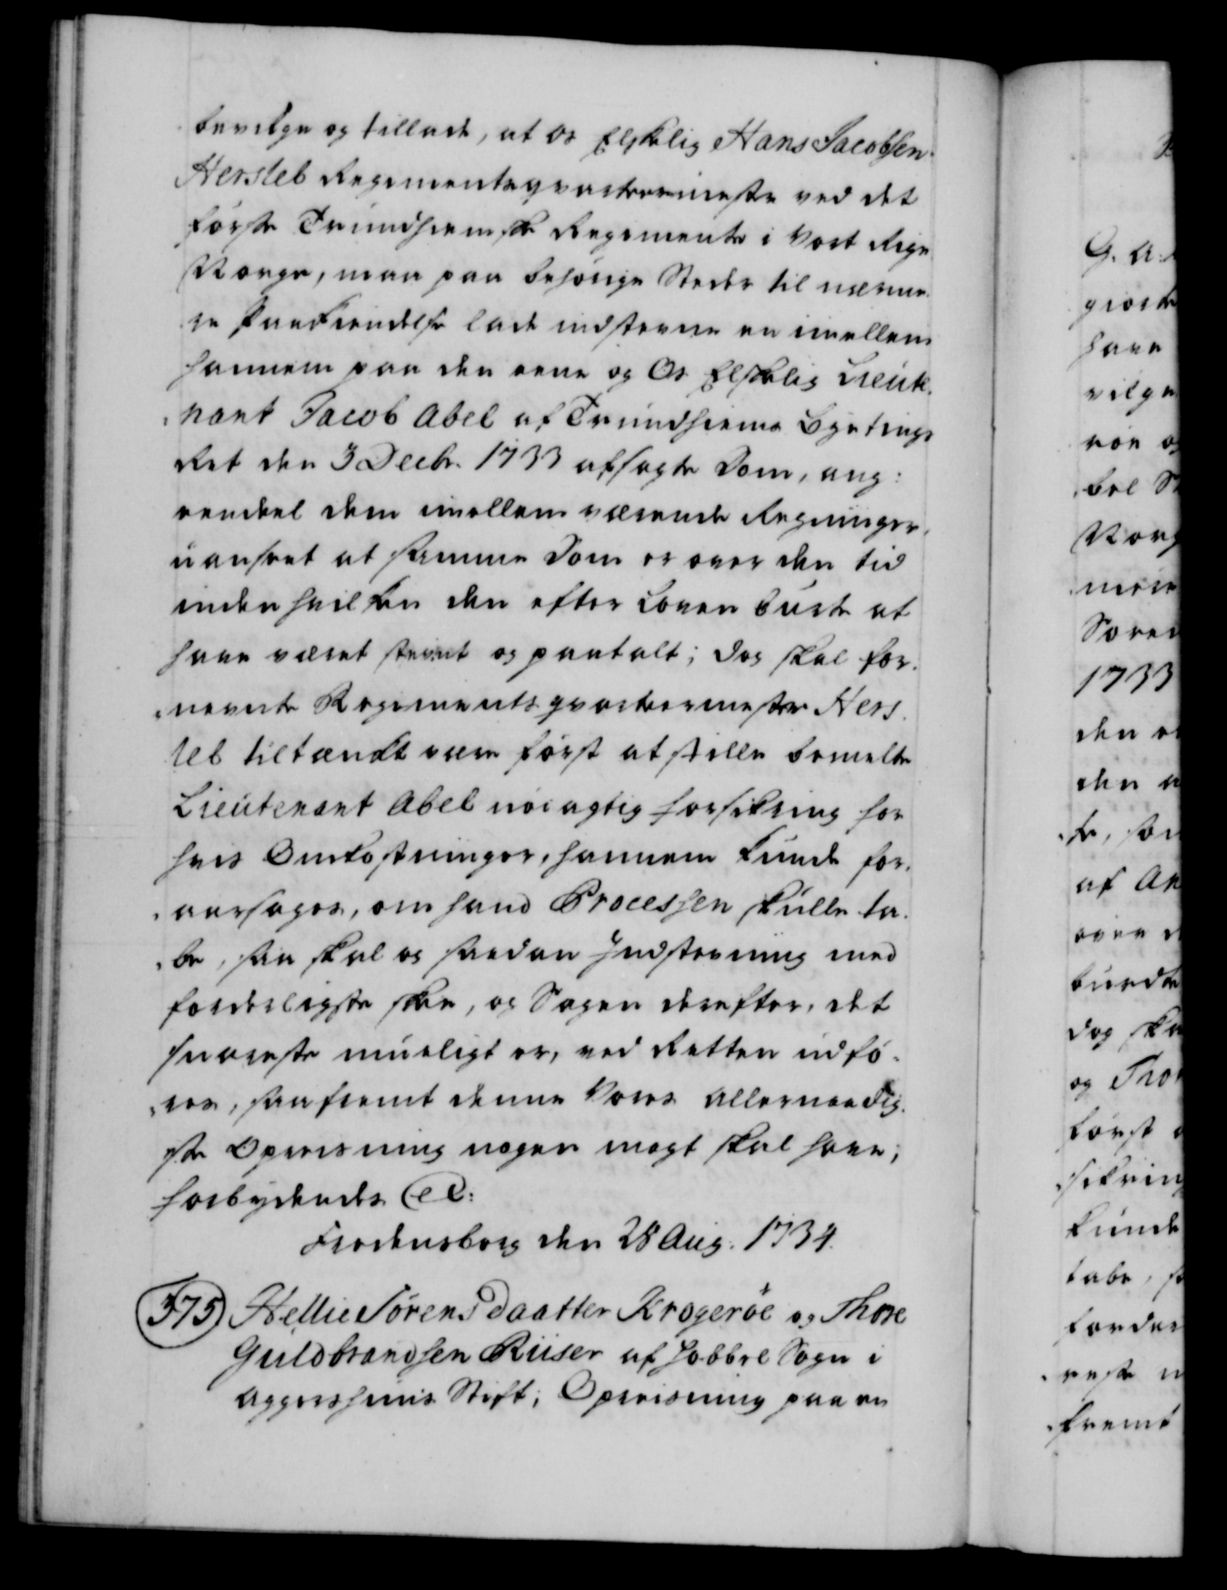 bevilge og tillade, at Os Elskelig Hans Jacobsen
Hersleb Regimentsqvarteermester ved det
første Trundhiemske Regimente i Vort Rige
Norge, maa paa behørige Steder til nærme-
re Paakiendelse lade indstevne en imellem
hannem paa den eene og Os Elskelig Lieute-
nant Jacob Abel af Trundhiems Bytings
Ret den 3 Decbr. 1733 afsagte Dom, ang:
eendeel dem imellem værende Regninger,
uanseet at samme Dom er over den tid
inden hvilken den efter Loven burde at
have været stevnt og paatalt; dog skal for-
nevnte Regimentsqvarteermester Hers-
leb tiltænkt være først at stille bemelte
Lieutenant Abel nöiagtig forsikring for
hvis Omkostninger, hannem kunde for-
aarsages, om hand Processen skulle ta-
be, saa skal og saadan Indstevning med
forderligste skee, og Sagen derefter, det
snareste mueligt er, ved Retten udfø-
res, saafremt denne Vores allernaadig-
ste Opreisning nogen magt skal have;
forbydendes &c:
Fredensborg den 28 Aug. 1734.
375) Hellie Sørens Daatter Krogerøe og Thore
Guldbrandsen Riiser af Hobbøl Sogn i
Aggershuus Stift; Opreisning paa en
G. A.
giort
have
vilge
1733
den
den
som
af
burdte
dog
og Thor
først
sikring
kunde
tabe,
forder
fremt